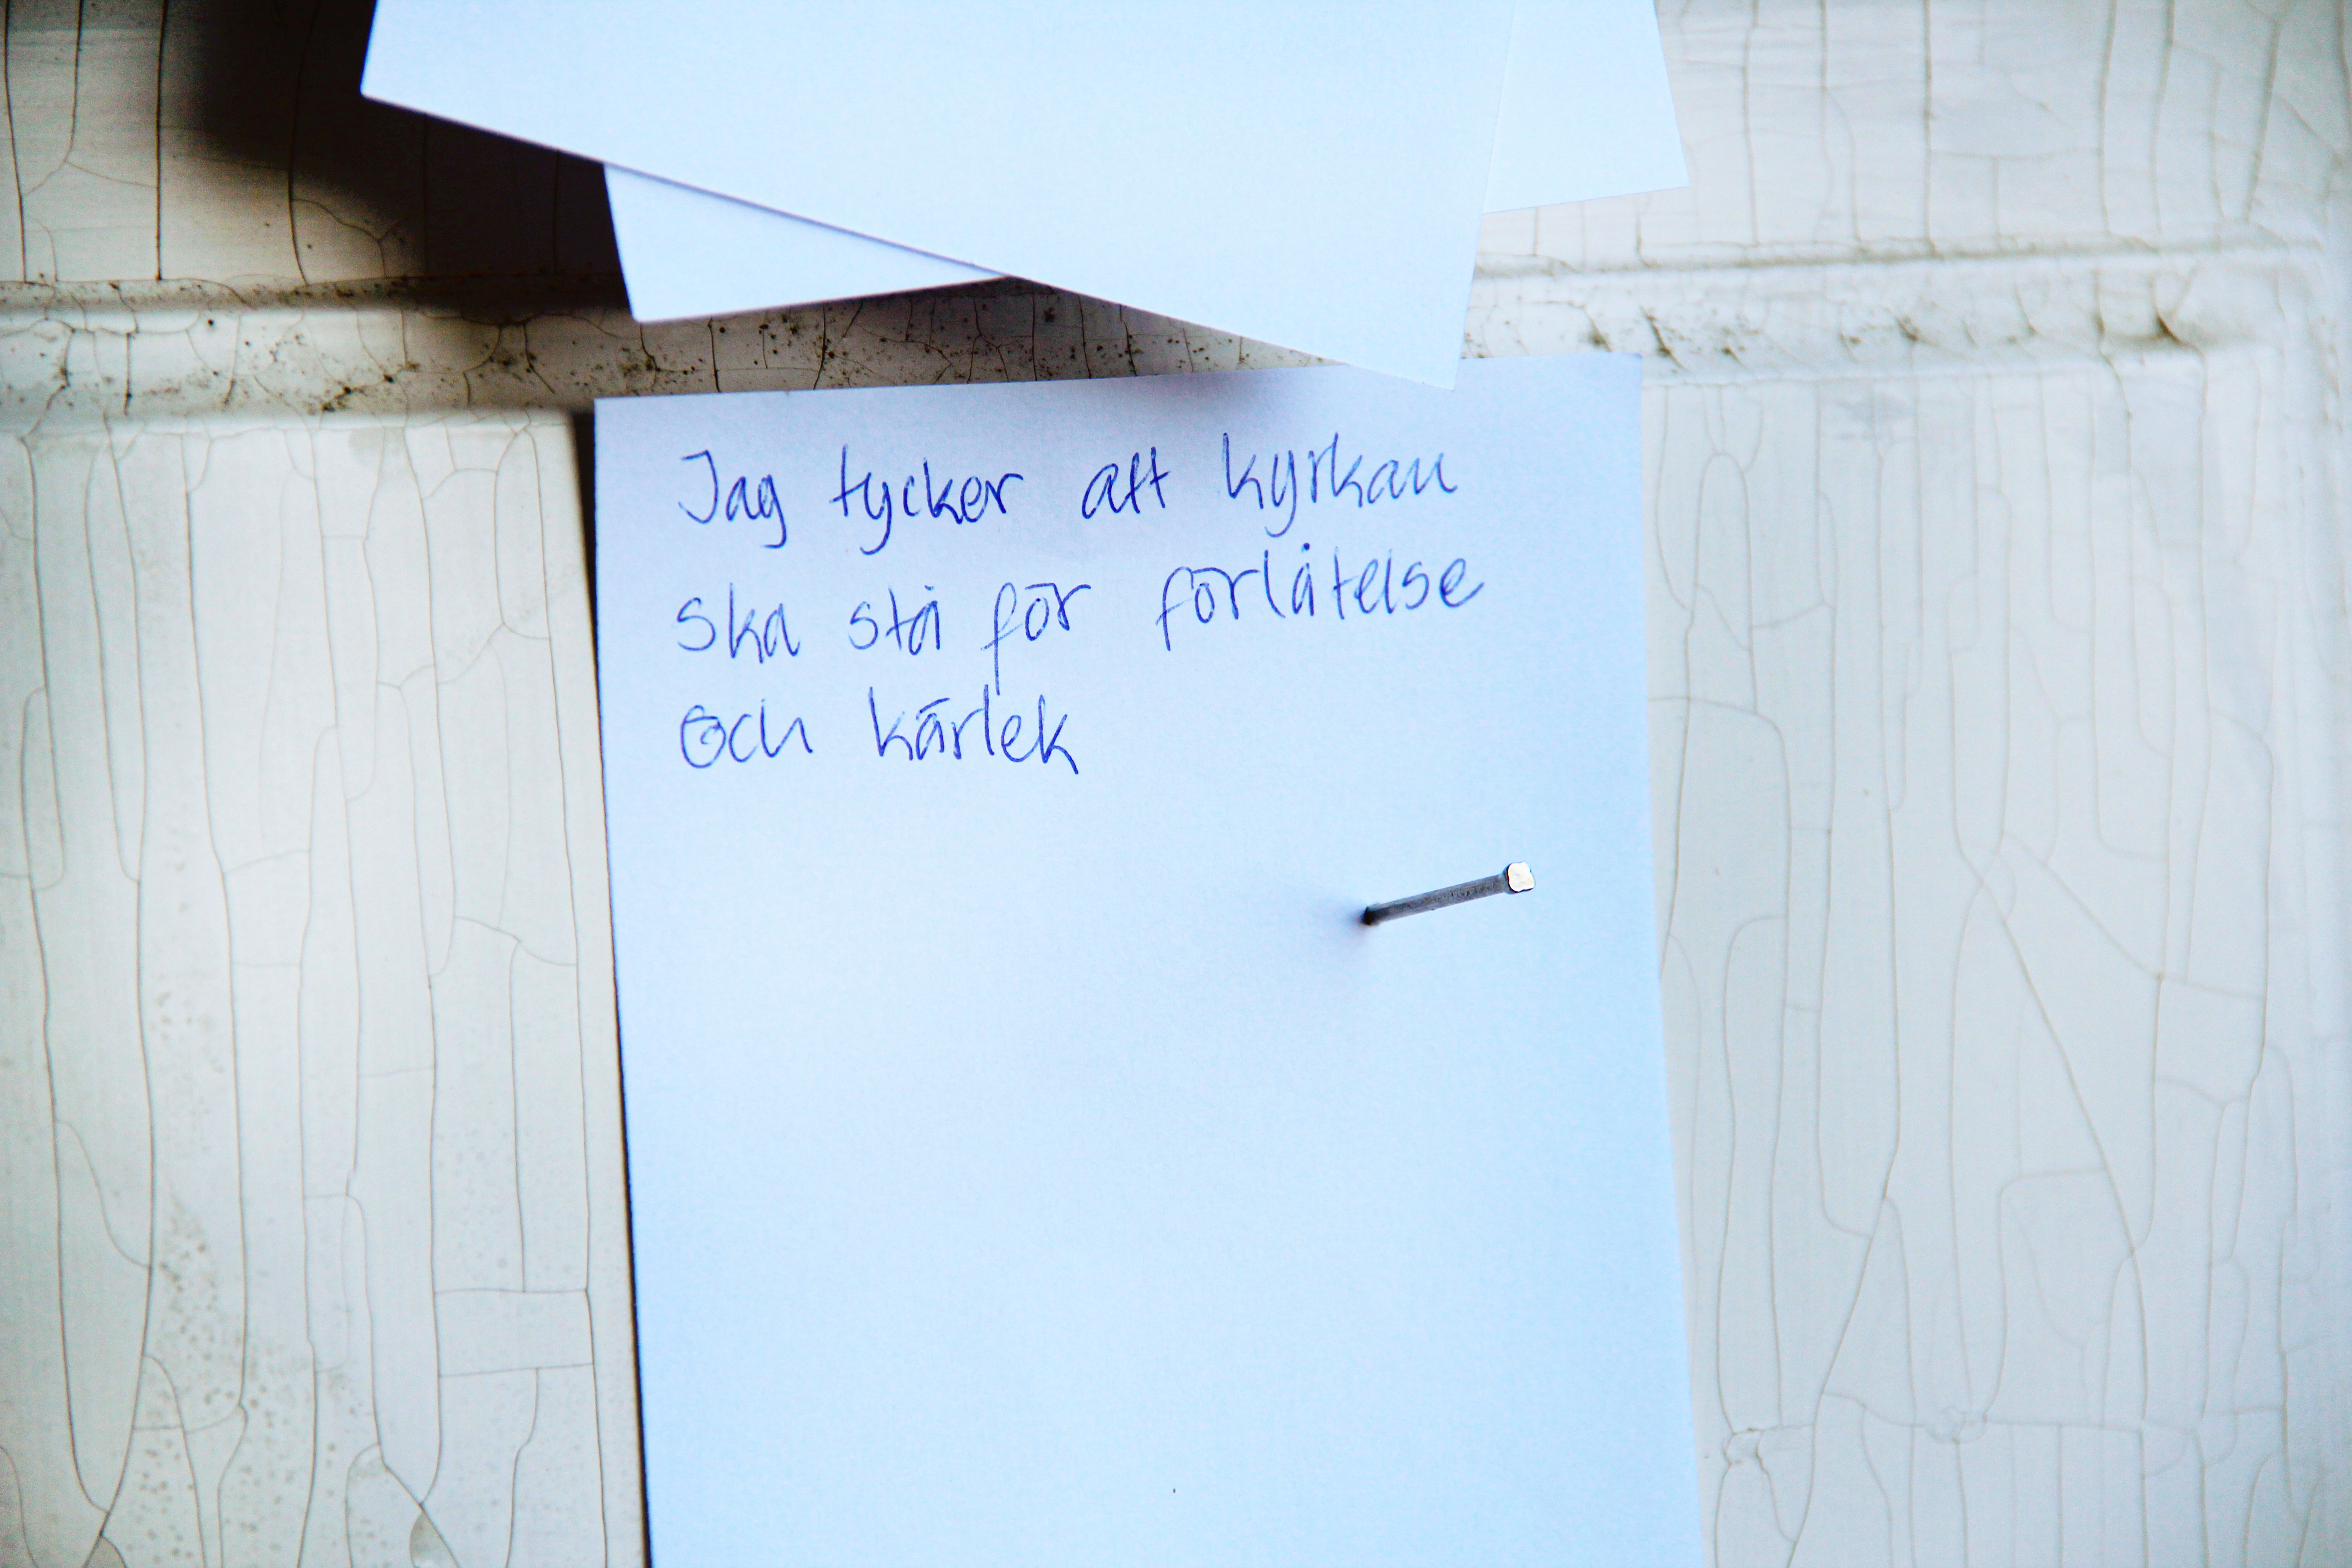 Jag tycker att kyrkan
ska stå för förlåtelse
och kärlek